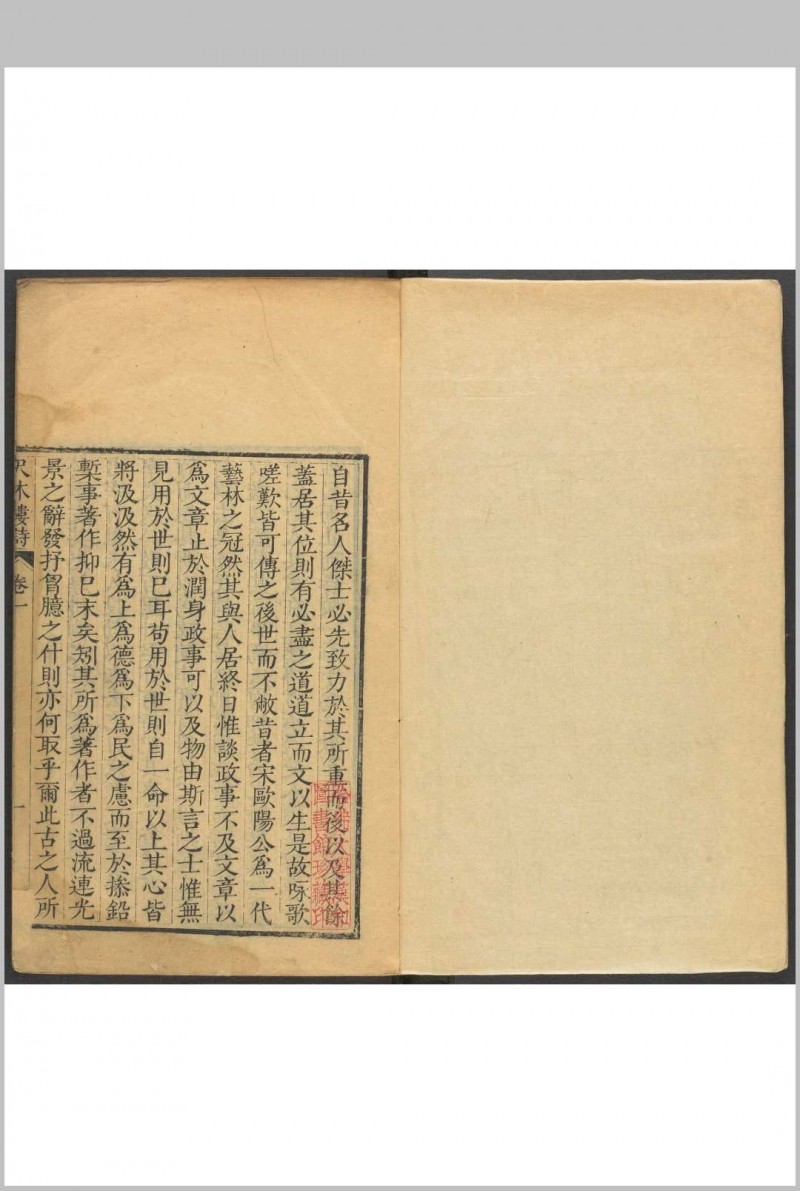 自昔名人傑士必先致力於其所重而後以及其餘
蓋居其位則有必盡之道道立而文以生是故咏歌
嗟歎皆可傳之後世而不敝昔者宋歐陽公爲一代
藝林之冠然其與人居終日惟談政事不及文章以
爲文章止於潤身政事可以及物由斯言之士惟無
見用於世則已耳苟用於世則自一命以上其心皆
將汲汲然有爲上爲德爲下爲民之慮而至於搽鉛
槧事著作抑已末矣矧其所爲著作者不過流連光
景之辭發抒胷臆之什則亦何取乎爾此古之人所
尺木樓詩 卷一 一
哈佛大學漢和
圖書館珍藏印